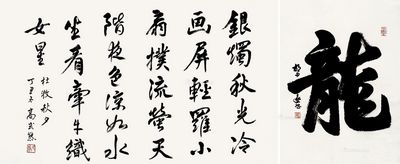 銀燭秋光冷
画屏輕羅小
扇撲流螢天
階夜色涼如水
坐看牽牛織
女星
杜牧秋夕
丁丑冬
龍